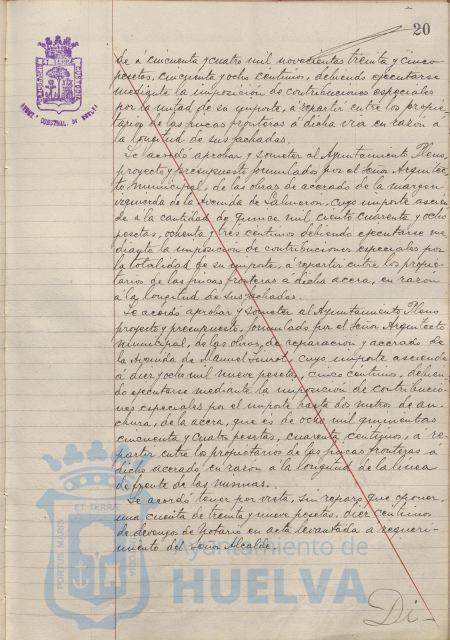 20
de á cincuenta y cuatro mil novecientas treinta y cinco
pesetas, cincuenta y ocho centimos, debiendo ejecutarse
mediante la imposición de contribuciones especiales
por la mitad de su importe, á repartir entre los propie-
tarios de las fincas fronteras á dicha via en razón á
la longitud de sus fachadas.
Se acordó aprobar y someter al Ayuntamiento Pleno,
proyecto y presupuesto formulados por el Señor Arquitec-
to Municipal, de las obras de acerado de la margen
izquierda de la Avenida de Salmeron, cuyo importe ascien-
de á la cantidad de quince mil ciento cuarenta y ocho
pesetas, ochenta y tres centimos debiendo ejecutarse me-
diante la imposición de contribuciones especiales por
la totalidad de su importe, á repartir entre los propie-
tarios de las fincas fronteras á dicha acera, en razón
á la longitud de sus fachadas.
Se acordó aprobar y someter al Ayuntamiento Pleno
proyecto y presupuesto, formulado por el Señor Arquitecto
Municipal, de las obras, de reparacion y acerado de
la Avenida de Manuel Siurot, cuyo importe asciende
á diez y ocho mil nueve pesetas, cinco centimos, debien-
do ejecutarse mediante la imposición de contribucio-
nes especiales por el importe hasta dos metros de an-
chura, de la acera, que es de ocho mil quinientas
cincuenta y cuatro pesetas, cuarenta centimos, a re-
partir entre los propietarios de las fincas fronteras á
dicho acerado en razón a la longitud de la linea
de frente de las mismas.
Se acordó tener por vista, sin reparo que oponer,
una cuenta de treinta y nueve pesetas, diez centimos
de devengos de Notario en acta levantada a requeri-
miento del Señor Alcalde.
Di-
PORTUS MARIS
ET TERRÆ
CUSTODIA
Ayuntamiento de
HUELVA